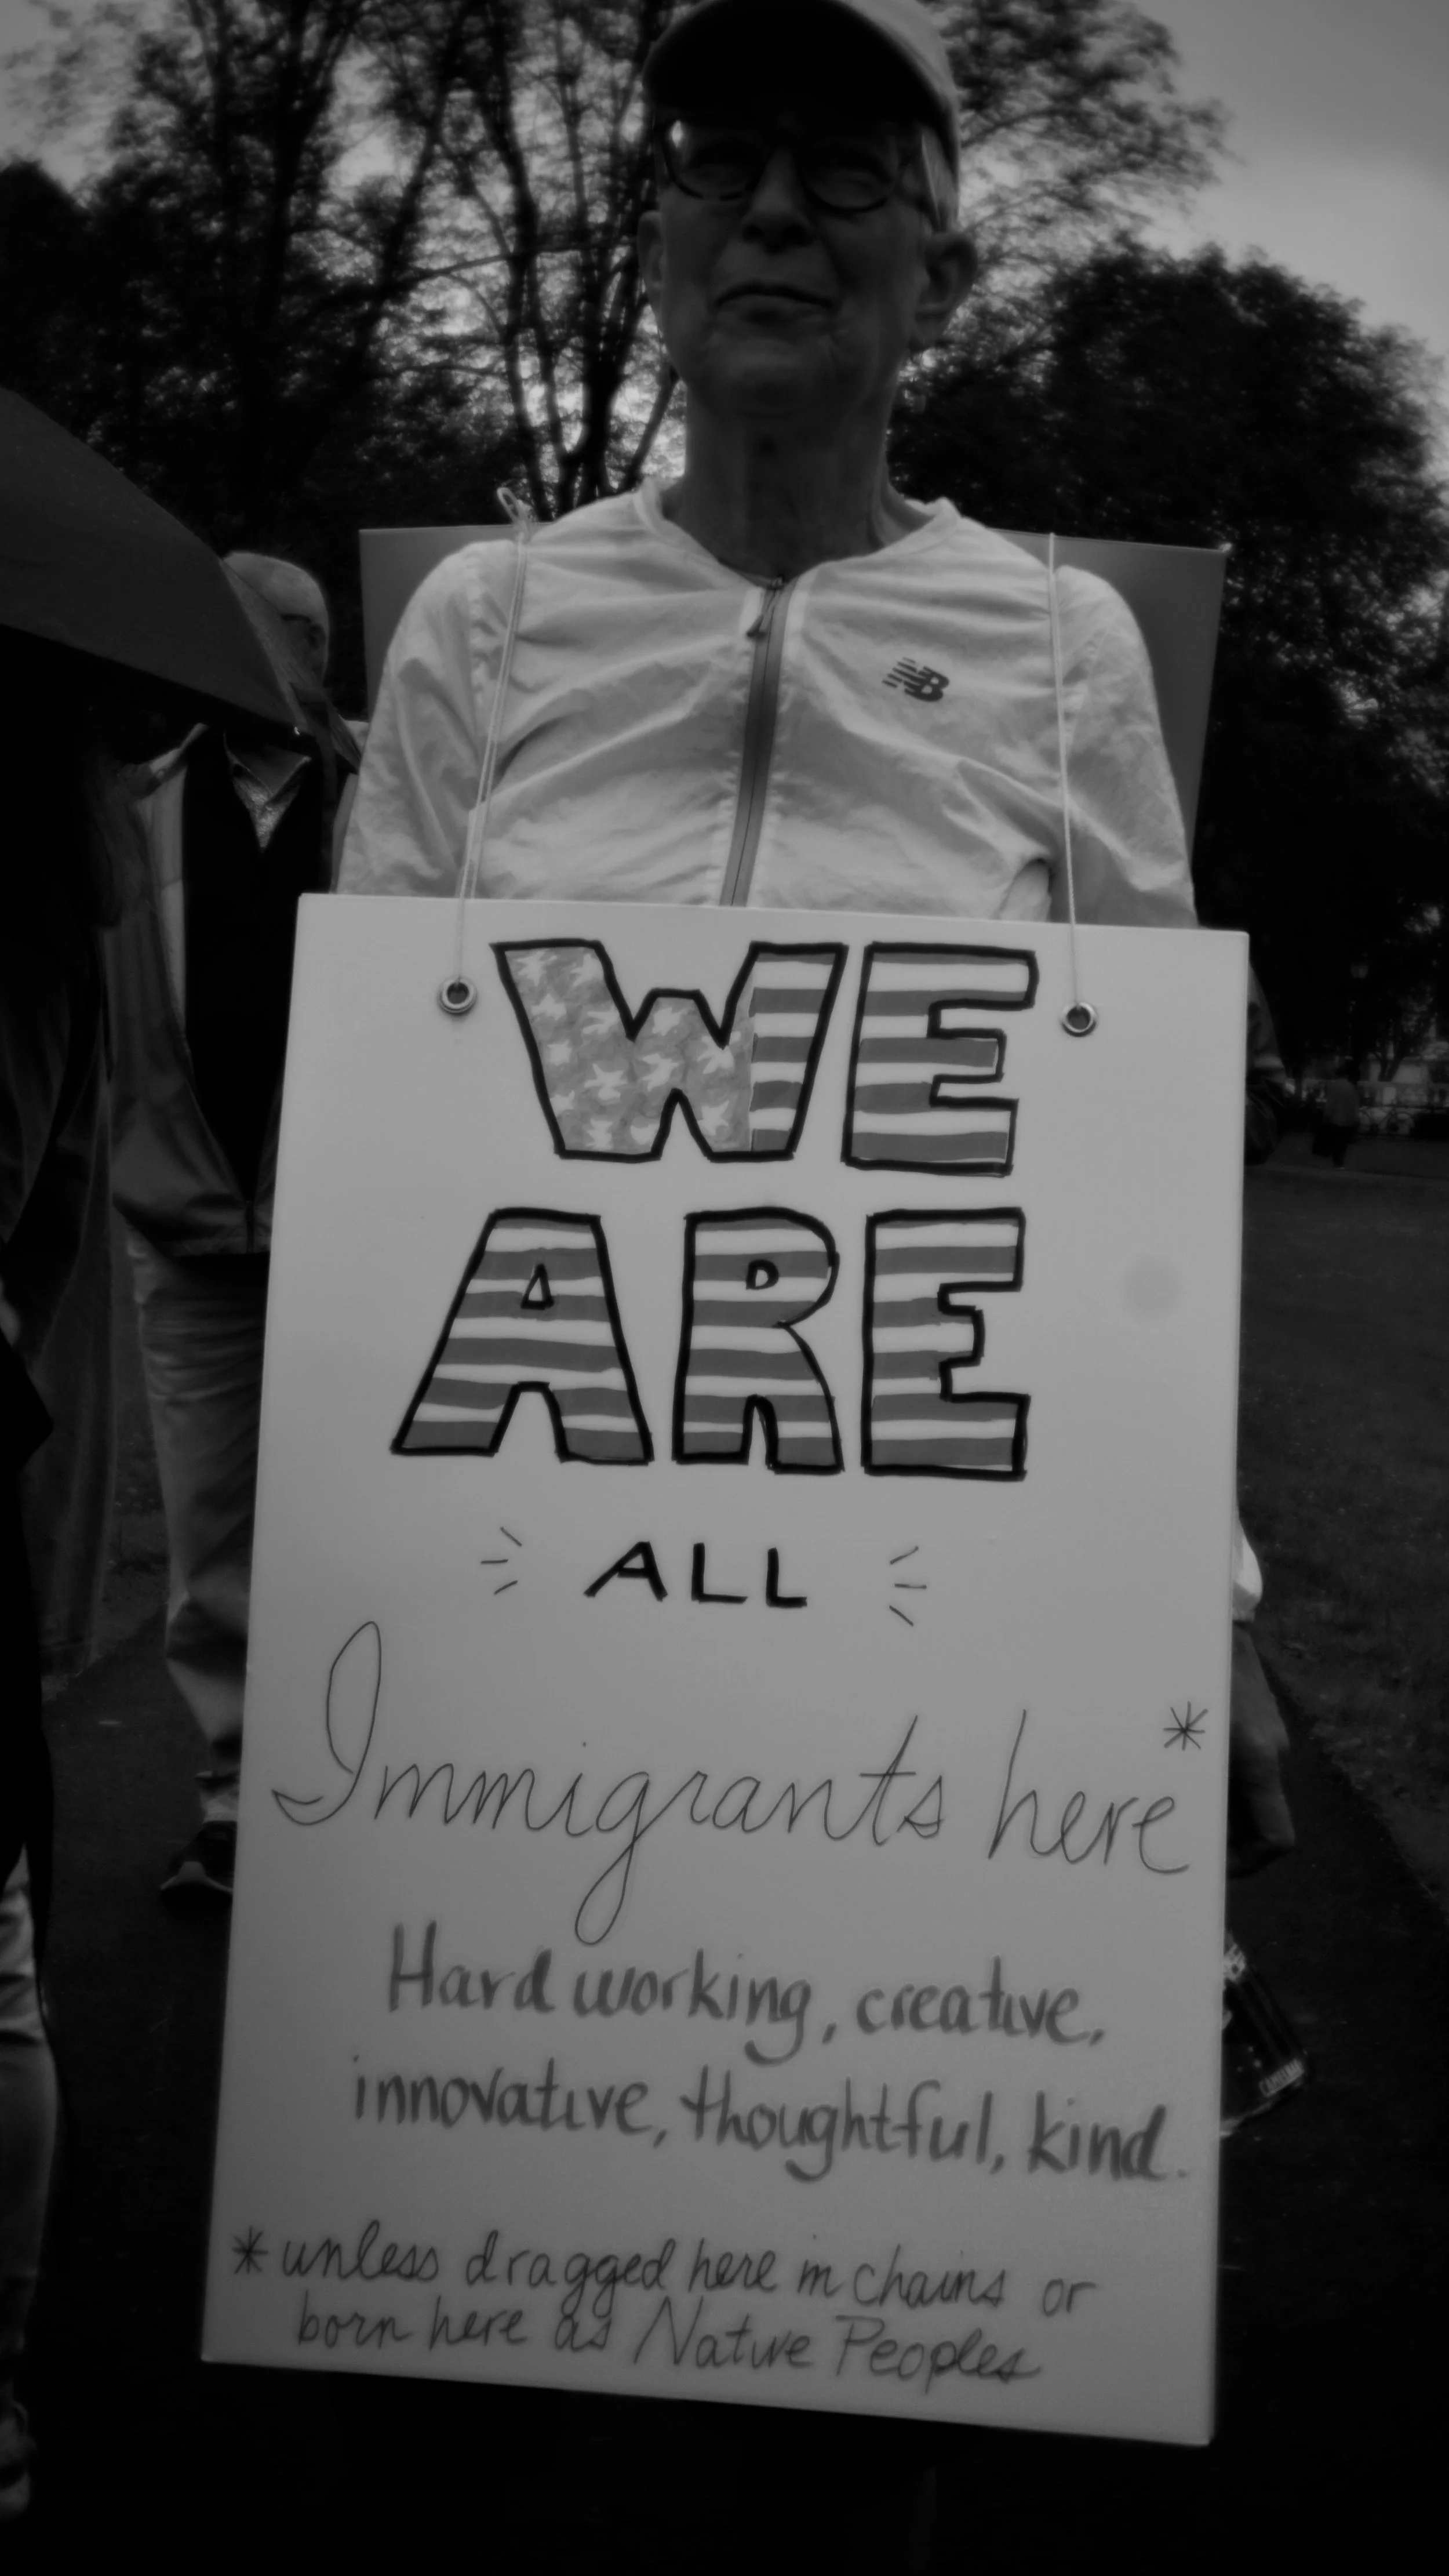 NB
WE
ARE
ALL
Immigrants here*
Hard working, creative,
innovative, thoughtful, kind.
* unless dragged here in chains or
born here as Native Peoples
CAMELBAK